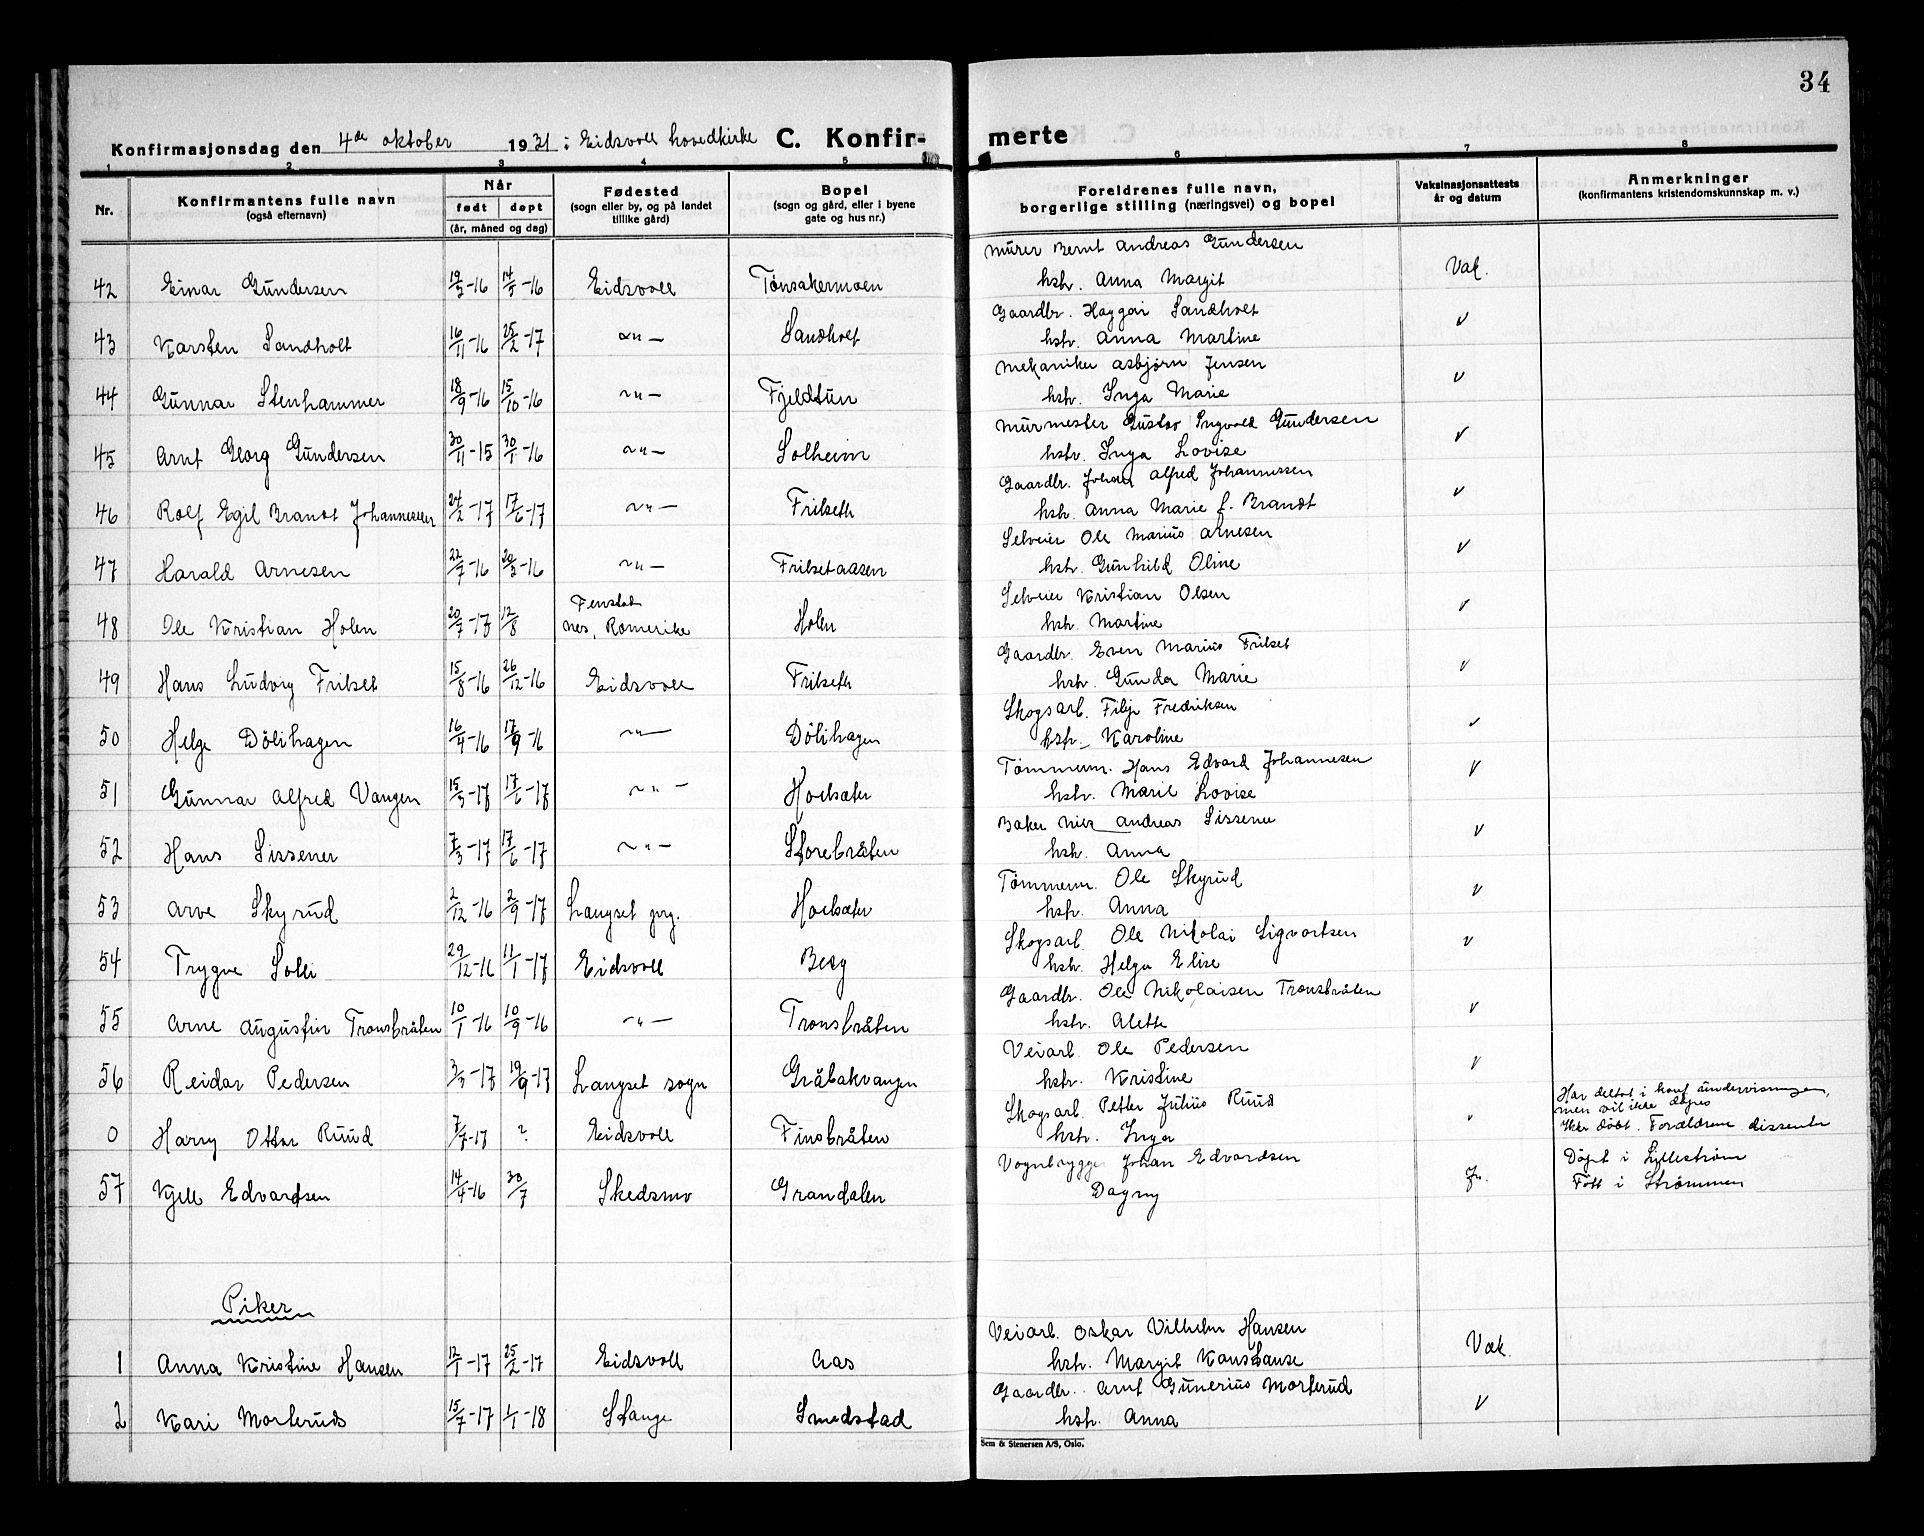 34
Konfirmasjonsdag den 4de oktober 1931 i Eidsvoll hovedkirke C. Konfir- merte
1 2 3 4 5 6 7 8
Nr. Konfirmantens fulle navn (også efternavn) Når født døpt (år, måned og dag) Fødested (sogn eller by, og på landet tillike gård) Bopel (sogn og gård, eller i byene gate og hus nr.) Foreldrenes fulle navn, borgerlige stilling (næringsvei) og bopel Vaksinasjonsattests år og datum Anmerkninger (konfirmantens kristendomskunnskap m. v.)
Murer Bernt Andreas Gundersen
42 Einar Gundersen 19/2-16 14/5-16 Eidsvoll Tønsakermoen hstr. Anna Margit Vak.
Gaardbr. Haggai Sandholt
43 Karsten Sandholt 16/11-16 25/2-17 -"- Sandholt hstr. Anna Martine v
Mekaniker Asbjørn Jensen
44 Gunnar Stenhammer 18/9-16 15/10-16 -"- Fjeldtun hstr. Inga Marie v
Murmester Gustav Ingvold Gundersen
45 Arnt Georg Gundersen 30/11-15 30/1-16 -"- Solheim hstr. Inga Lovise v
Gaardbr. Johan Alfred Johannessen
46 Rolf Egil Brandt Johannessen 24/2-17 17/6-17 -"- Frilseth hstr. Anna Marie f. Brandt v
Selveier Ole Marius Arnesen
47 Harald Arnesen 22/7-16 -16 -"- Frilsetaasen hstr. Gunhild Oline v
Selveier Kristian Olsen
48 Ole Kristian Holen 20/7-17 12/8 Fenstad Nes, Romerike Holen hstr. Martine v
Gaardbr. Even Marius Frilset
49 Hans Ludvig Frilset 15/8-16 26/12-16 Eidsvoll Frilseth hstr. Gunda Marie v
Skogsarb. Filip Fredriksen
50 Helge Dölihagen 16/4-16 17/9-16 -"- Dölihagen hstr. Karoline v
Tømmerm. Hans Edvard Johannesen
51 Gunnar Alfred Vangen 15/3-17 17/6-17 -"- Holsæter hstr. Marie Lovise v
Baker Nils Andreas Sissener
52 Hans Sissener 7/3-17 17/6-17 -"- Storebråten hstr. Anna v
Tømmerm. Ole Skyrud
53 Arve Skyrud 2/12-16 2/9-17 Langset Holsæter hstr. Anna v
Skogsarb. Ole Nikolai Sigvartsen
54 Trygve Solli 29/12-16 11/1-17 Eidsvoll Berg hstr. Helga Elise v
Gaardbr. Ole Nikolaisen Tronsbråten
55 Arne Augustin Tronsbråten 10/1-16 10/9-16 -"- Tronsbråten hstr. Alette v
Veiarb. Ole Pedersen
56 Reidar Pedersen 3/3-17 19/9-17 Langset sogn Gråbakvangen hstr. Kristine v
Skogsarb. Petter Julius Ruud Har deltat i konf. undervisningen, men vil ikke døpes
0 Harry Ottar Ruud 7/7-17 ? Eidsvoll Finsbråten hstr. Inga v Ikke döbt. Foreldrene dissente
Vognbygger Johan Edvardsen Döpt i Lillestrøm
57 Kjell Edvardsen 14/4-16 30/7 Skedsmo Grandalen Dagny Fött i Strømmen
Piker
Veiarb. Oskar Vilhelm Hansen
1 Anna Kristine Hansen 12/1-17 25/2-17 Eidsvoll Aas hstr. Margit Konstanse Vak.
Gaardbr. Arnt Gunerius Morterud
2 Kari Morteruds 15/7-17 1/1-18 Stange Smedstad hstr. Anna v
Sem & Stenersen A/S, Oslo.